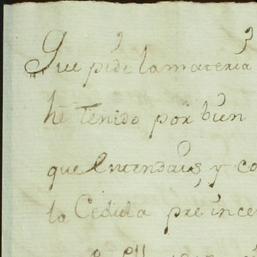 Que pide la materia
he Tenido por bien
que Entendais, y co
la Cedula pre ince